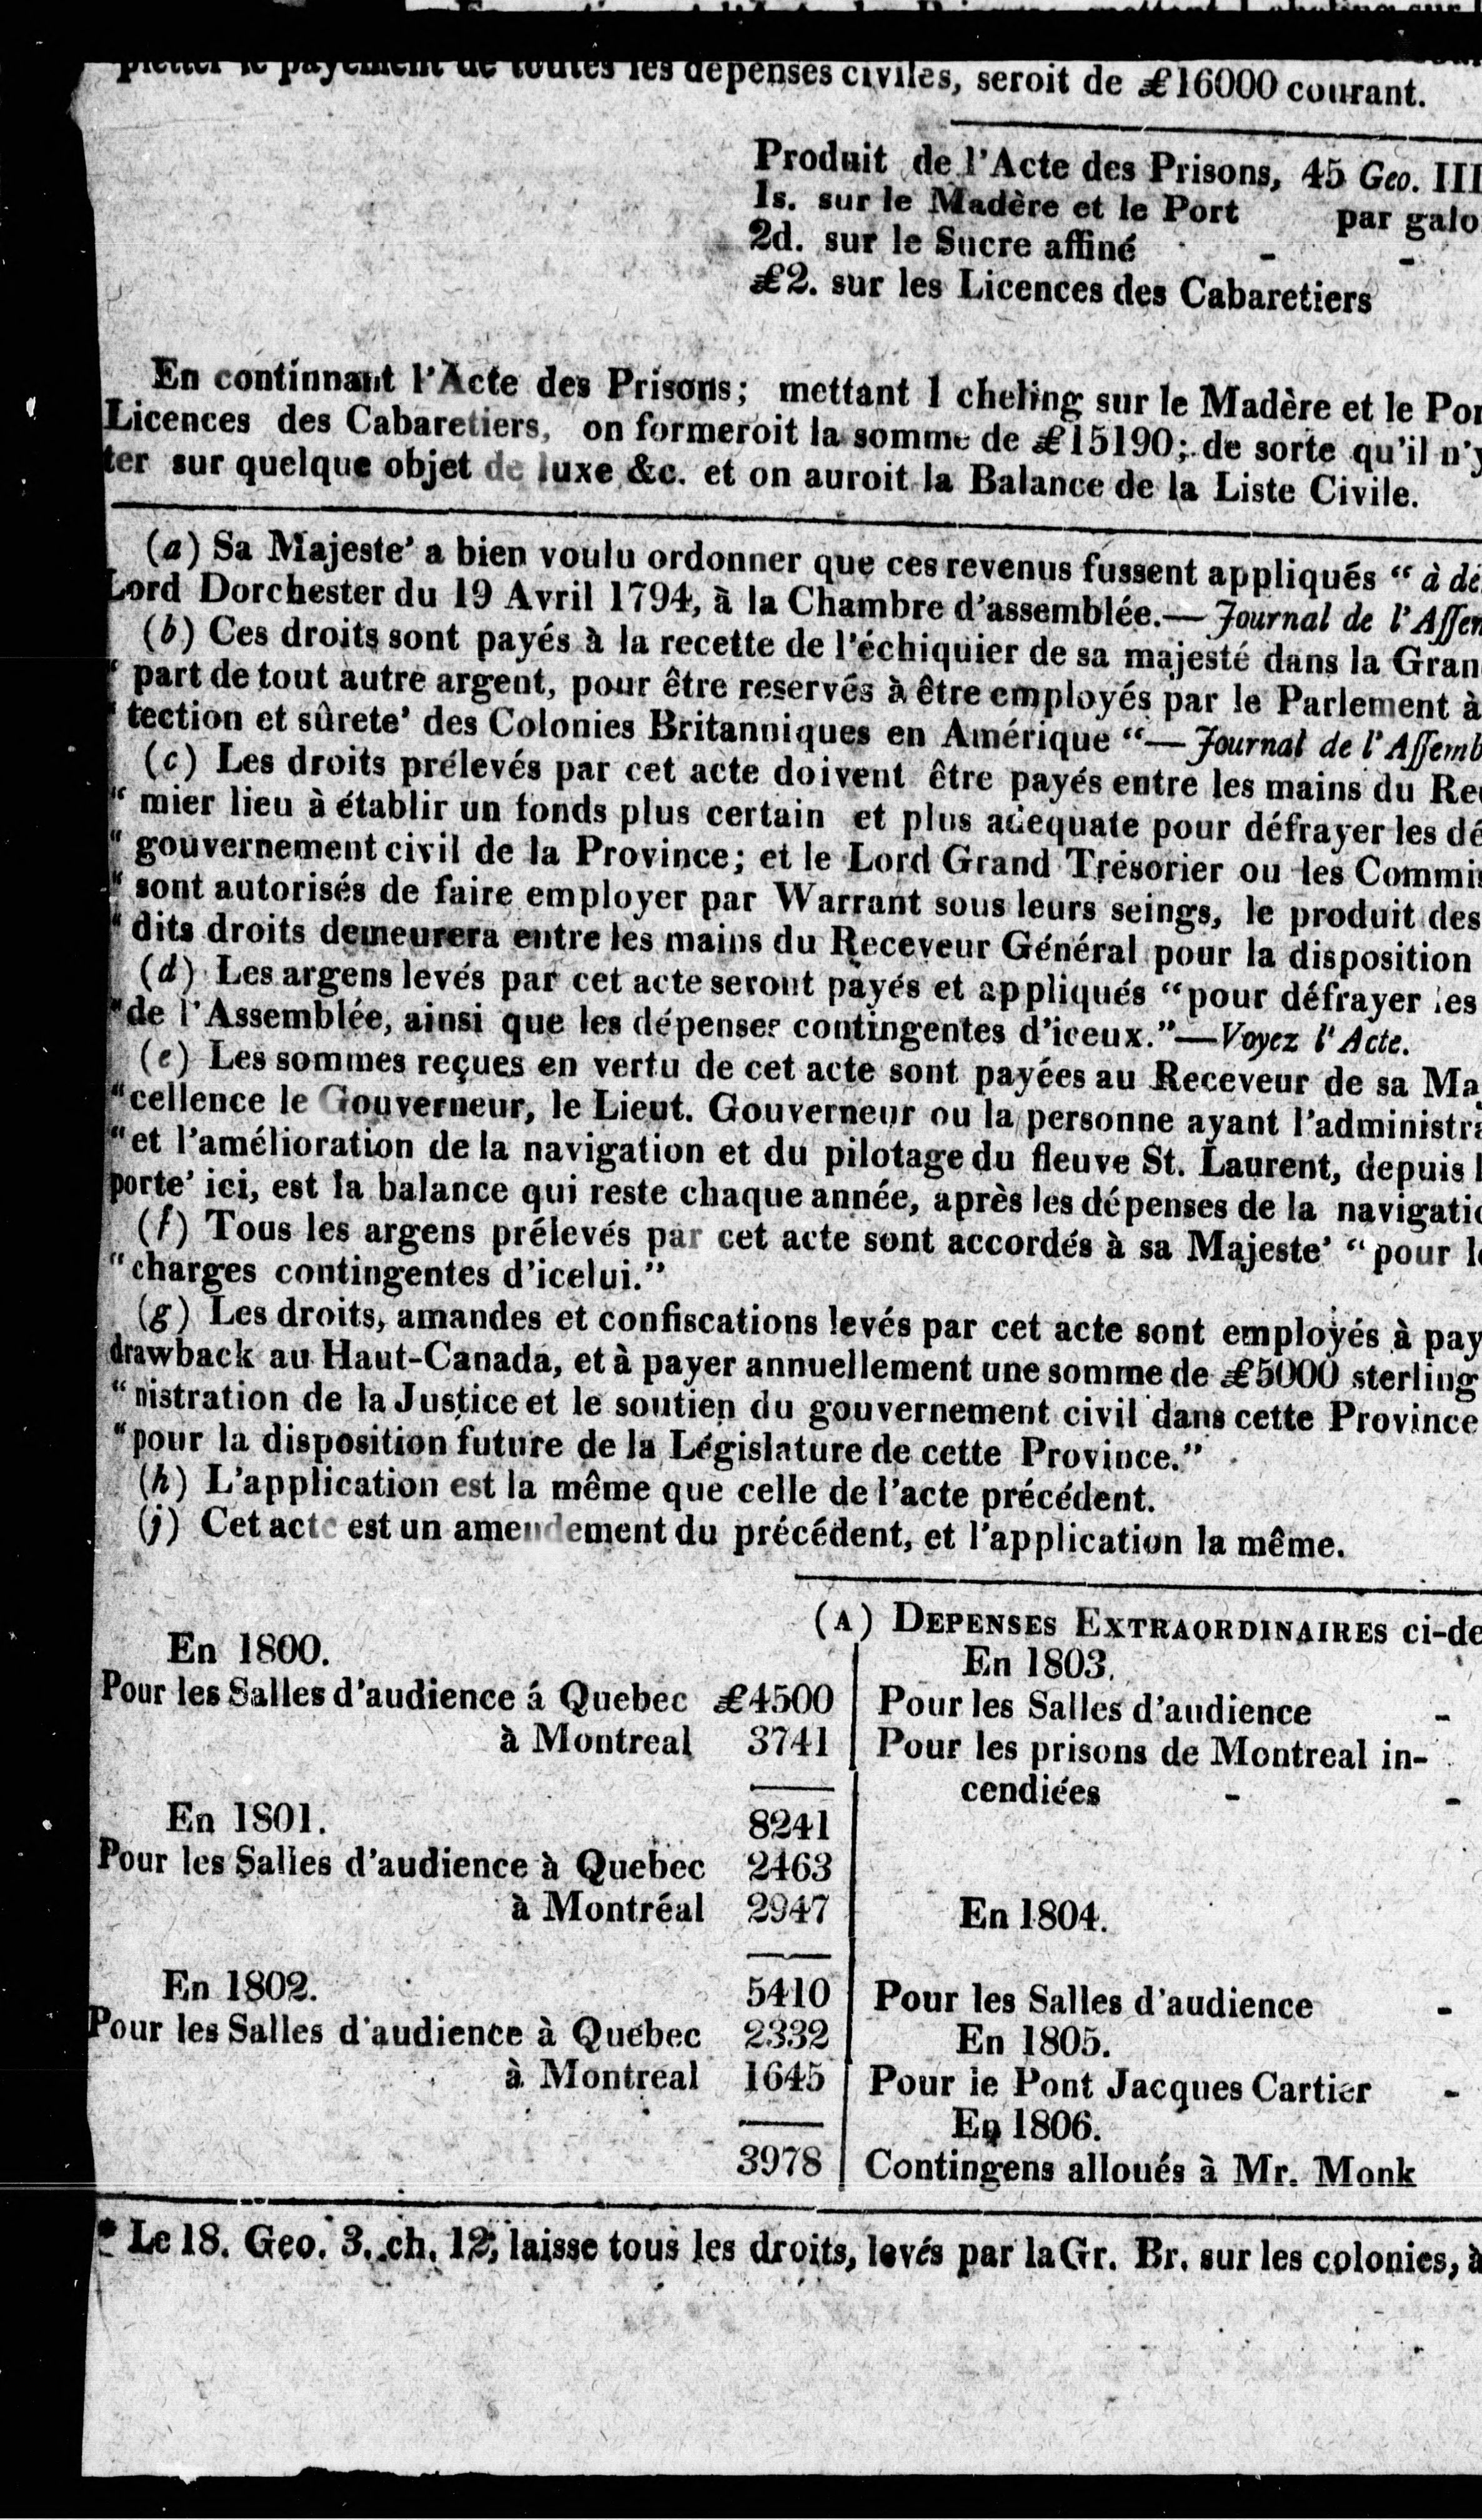 pletter le payement de toutes les dépenses civiles, seroit de £16000 courant.
Produit de l'Acte des Prisons, 45 Geo. III
1s. sur le Madère et le Port par galo
2d. sur le Sucre affiné - -
£2. sur les Licences des Cabaretiers
En continnant l'Acte des Prisons; mettant 1 cheling sur le Madère et le Por
Licences des Cabaretiers, on formeroit la somme de £15190; de sorte qu'il n'y
ter sur quelque objet de luxe &c. et on auroit la Balance de la Liste Civile.
(a) Sa Majeste' a bien voulu ordonner que ces revenus fussent appliqués "à dé
Lord Dorchester du 19 Avril 1794, à la Chambre d'assemblée.—Journal de l'Assem
(b) Ces droits sont payés à la recette de l'échiquier de sa majesté dans la Gran
" part de tout autre argent, pour être reservés à être employés par le Parlement à
" tection et sûrete' des Colonies Britanniques en Amérique "—Journal de l'Assemb
(c) Les droits prélevés par cet acte doivent être payés entre les mains du Re
" mier lieu à établir un fonds plus certain et plus adequate pour défrayer les dé
" gouvernement civil de la Province; et le Lord Grand Trésorier ou les Commis
" sont autorisés de faire employer par Warrant sous leurs seings, le produit des
" dits droits demeurera entre les mains du Receveur Général pour la disposition
(d) Les argens levés par cet acte seront payés et appliqués "pour défrayer les
"de l'Assemblée, ainsi que les dépenses contingentes d'iceux."—Voyez l'Acte.
(e) Les sommes reçues en vertu de cet acte sont payées au Receveur de sa Ma
"cellence le Gouverneur, le Lieut. Gouverneur ou la personne ayant l'administra
"et l'amélioration de la navigation et du pilotage du fleuve St. Laurent, depuis l
porte' ici, est la balance qui reste chaque année, après les dépenses de la navigatio
(f) Tous les argens prélevés par cet acte sont accordés à sa Majeste' "pour le
"charges contingentes d'icelui."
(g) Les droits, amandes et confiscations levés par cet acte sont employés à pay
drawback au Haut-Canada, et à payer annuellement une somme de £5000 sterling
"nistration de la Justice et le soutien du gouvernement civil dans cette Province
"pour la disposition future de la Législature de cette Province."
(h) L'application est la même que celle de l'acte précédent.
(j) Cet acte est un amendement du précédent, et l'application la même.
(A) DEPENSES EXTRAORDINAIRES ci-de
En 1800.
Pour les Salles d'audience á Quebec £4500
à Montreal 3741
8241
En 1801.
Pour les Salles d'audience à Quebec 2463
à Montréal 2947
5410
En 1802.
Pour les Salles d'audience à Quebec 2332
à Montreal 1645
3978
En 1803.
Pour les Salles d'audience -
Pour les prisons de Montreal in-
cendiées - -
En 1804.
Pour les Salles d'audience -
En 1805.
Pour le Pont Jacques Cartier -
En 1806.
Contingens alloués à Mr. Monk
* Le 18. Geo. 3. ch. 12, laisse tous les droits, levés par la Gr. Br. sur les colonies, à